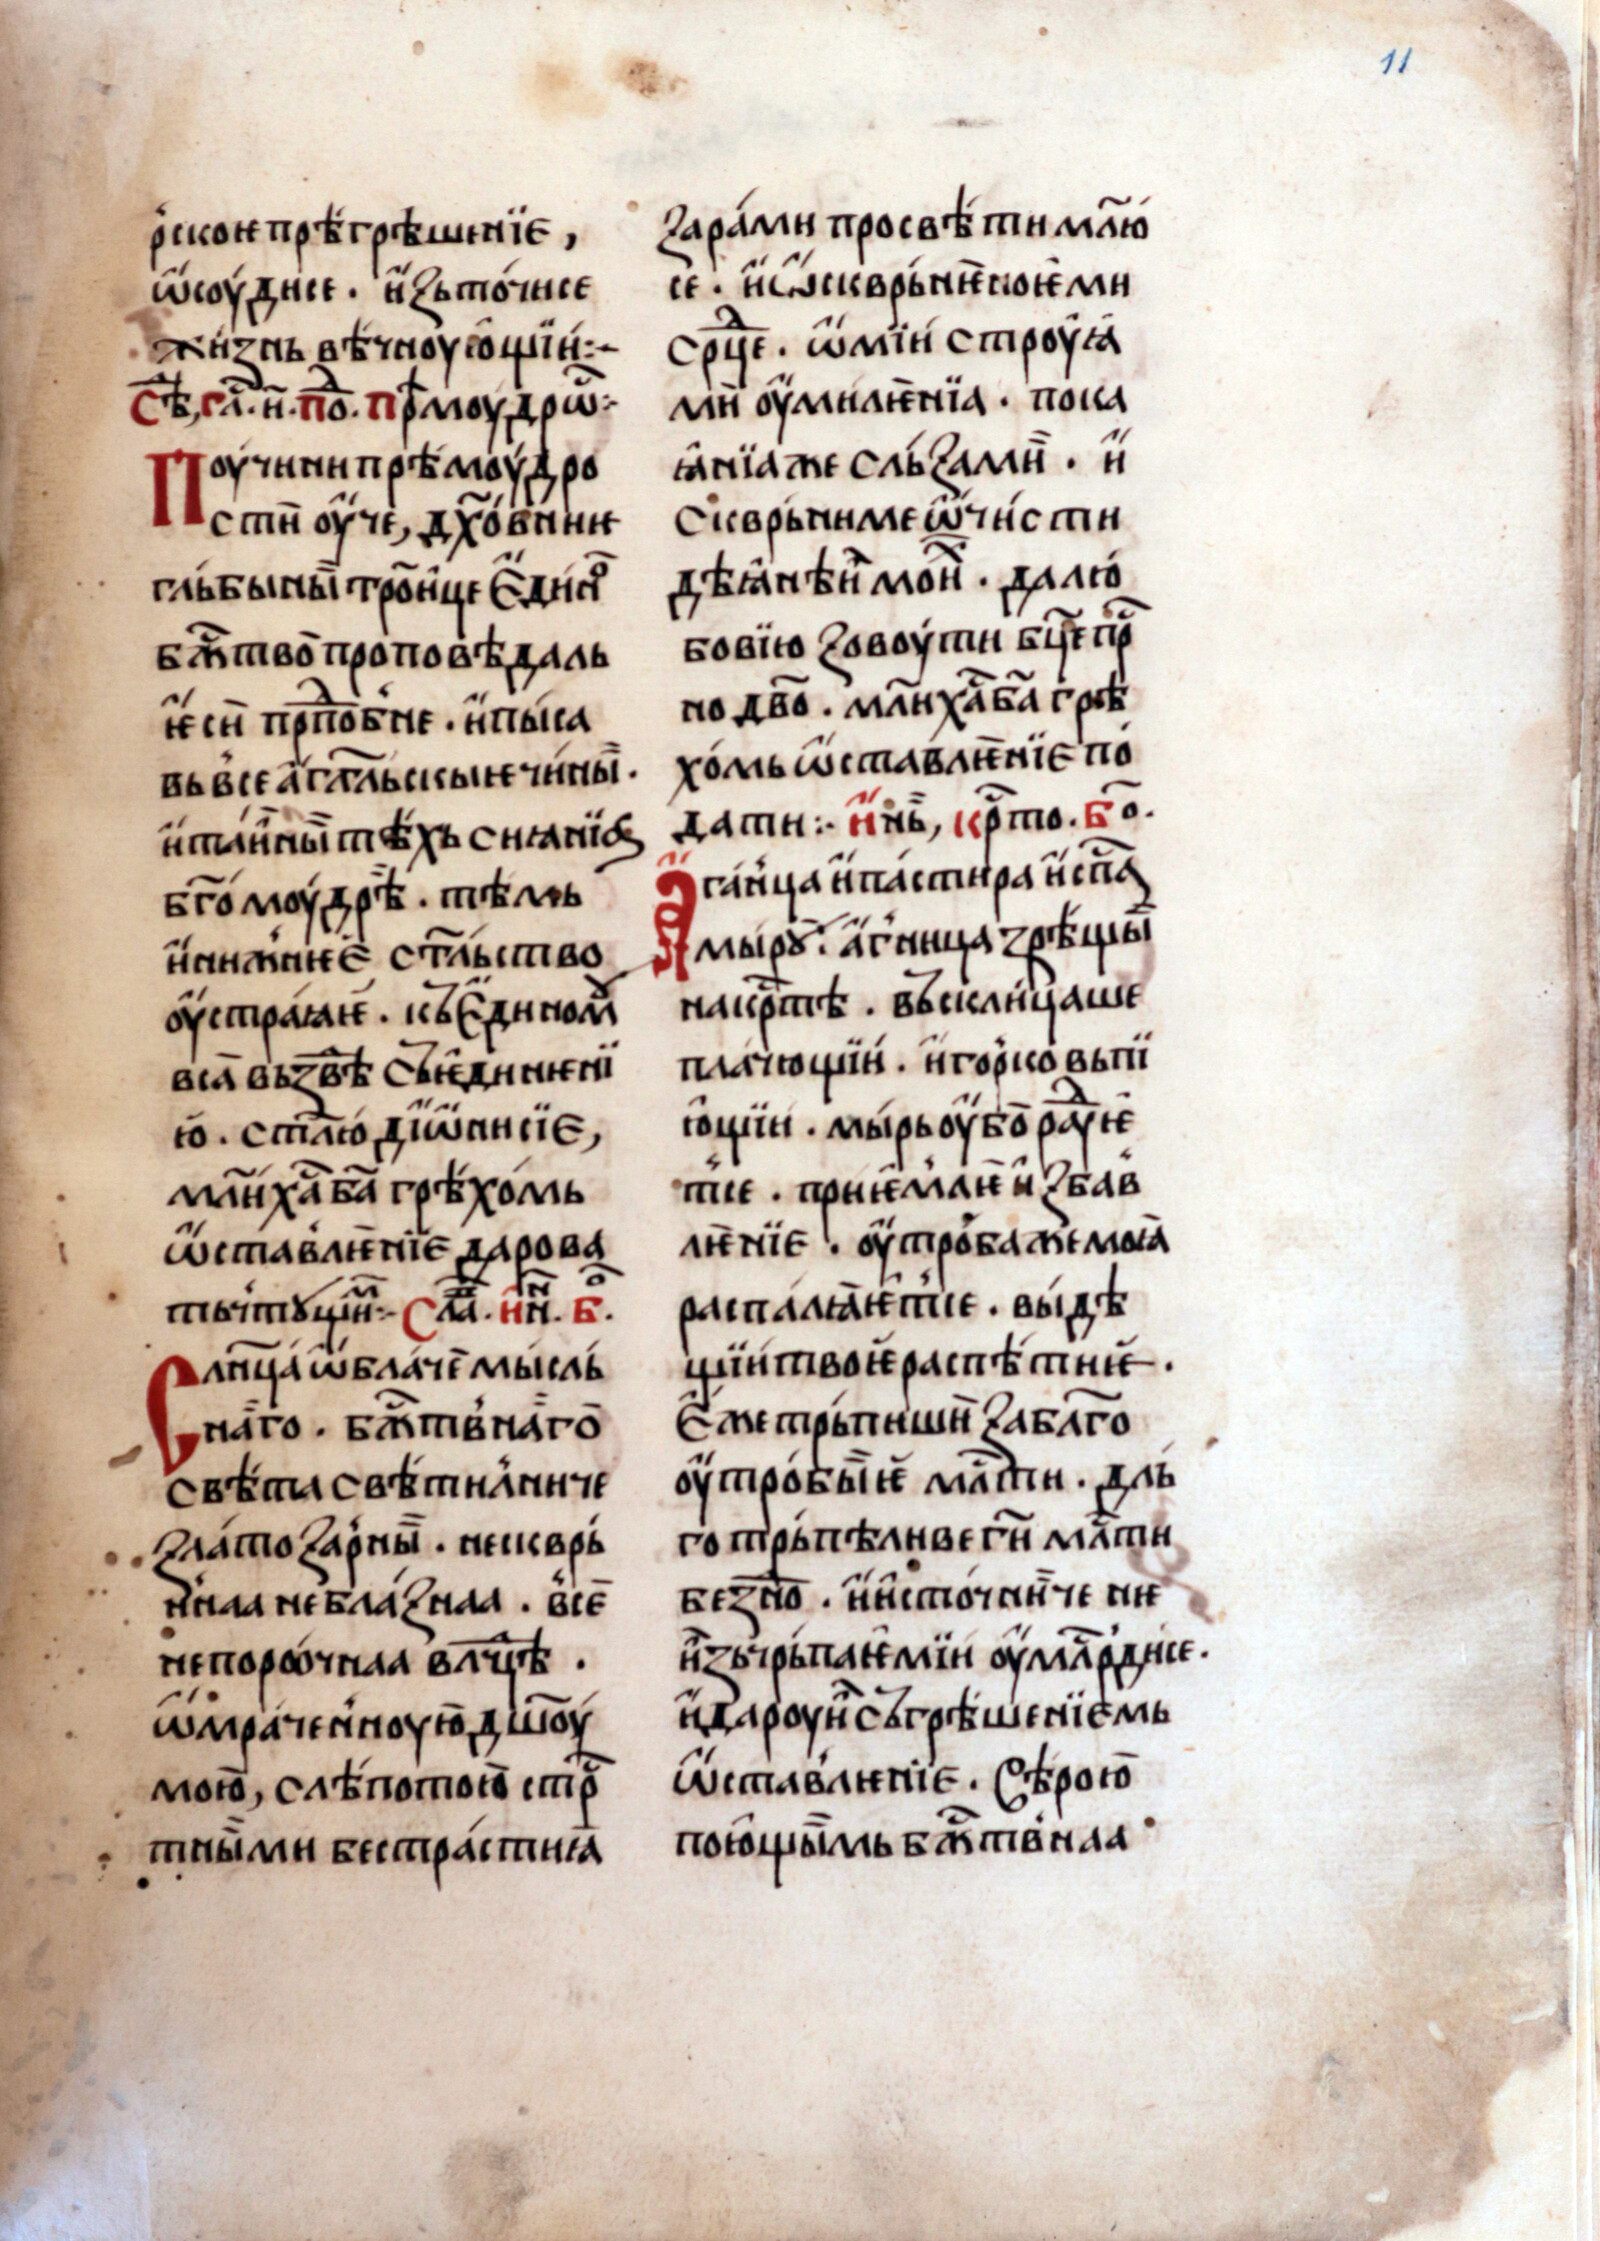 11
рскоѥ прѣгрѣшенїѥ,
ѿсоудисе. и҆ зьточнсе
жизнь вѣчноую҆щїи:~
Сѣ, гла҃. и҃. по҃. Прѣмоудрѡ҃:~
Поучини прѣмоу́дро
сти ѹ҆че, дх҃о́вниѥ
гль́быны тро́ице Є҆ди́н
бж҃тво проповѣдаль
ѥ҆си прп҃о́бне. и҆ пы́са
вь все а҆гг҃льскыѥ чи́ны.
и҆ та́иныи тѣ́хь сиꙗнїѥ
бг҃омоу́дрѣ. тѣмь
и҆ нижнѥѥ ст҃льство
ѹ҆стра́ꙗѥ. кь Є҆диномꙋ
вса вьзвѣ сьѥ҆динѥнї
ю. ст҃лю дїѡ҆нисїѥ,
мл҃и х҃а б҃а грѣхо́мь
ѡ҆ставлѥ́нїѥ дарова
ть чтꙋщїи:~ Сла҃. и҆ н҃. Б҃.
Слн҃ца ѡ҆блаче мысль
на́го. бж҃твна́го
свѣ́та свѣти́лниче
зла́тоза́рны. нескврь́
ннаа небла́знаа. все
непорочнаа влⷣце .
ѡ҆мрачен́ноую дш҃оу́
мою, слѣпотою стрⷭ
тны́ми бестра́стиꙗ
зара́ми просвѣ́ти мл҃ю
се. и҆ ѡ҆скврьнѥ́ноѥ ми
срⷣце. ѡ҆мїи строу́ꙗ
ми ѹ҆милѥ́нїа. пока
ꙗ҆нїа же слъза́ми. и҆
скврь́ниме ѡ҆чи́сти
дѣꙗнѣи мои. да лю́
бовїю зовоу́ ти бц҃е прⷭ
но дв҃о. мл҃и х҃а б҃а грѣ
хо́мь ѡ҆ставлѥ́нїѥ по
да́ти:~ и҆ н҃ы, крⷭто. Бо҃.
Ꙗ҆ га́нца и҆ па́стира и҆ сп҃са
мы́рꙋ. а҆́гница зрѣщы
на крⷭтѣ. вьскли́цаше
пла́чющїи. и҆ го́рко вьпї
ю҆щїи. мырь ѹ҆бо раⷣуѥ
тсе. приѥ҆млѥ и҆збав
лѥ́нїѥ. ѹ҆тро́ба же моꙗ
распалꙗ́ѥтсе. вы́дѣ
щїи твоѥ распѣ́тиѥ.
Є҆же трьпиши за бл҃го
ѹ҆тро́быѥ мл҃сти. дль́
готрьпѣ́ливе ги҃ мл҃сти
бе́зно. и҆ и҆сто́чниче не
и҆зьчрьпаѥмїи ѹ҆мл҃рдисе.
и҆ даро́уи съгрѣшенїемь
ѡ҆ставлѥнїѥ. Сь вѣрою
пою҆щымь бж҃твнаа